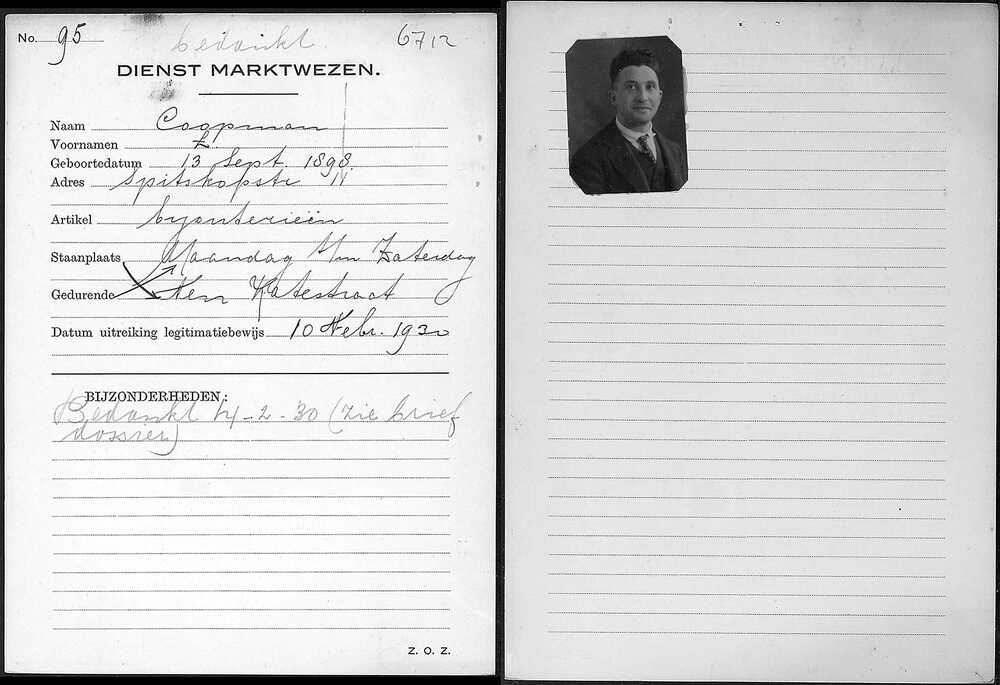 No. 95 bedankt 6712
DIENST MARKTWEZEN.
Naam Coopman
Voornamen E
Geboortedatum 13 Sept. 1898.
Adres Spitskopstr 11
Artikel byouterieën
Staanplaats Maandag t/m Zaterdag
Gedurende Ten Katestraat
Datum uitreiking legitimatiebewijs 10 Febr. 1930
BIJZONDERHEDEN:
Bedankt 14-2-30 (zie brief
dossier)
Z. O. Z.